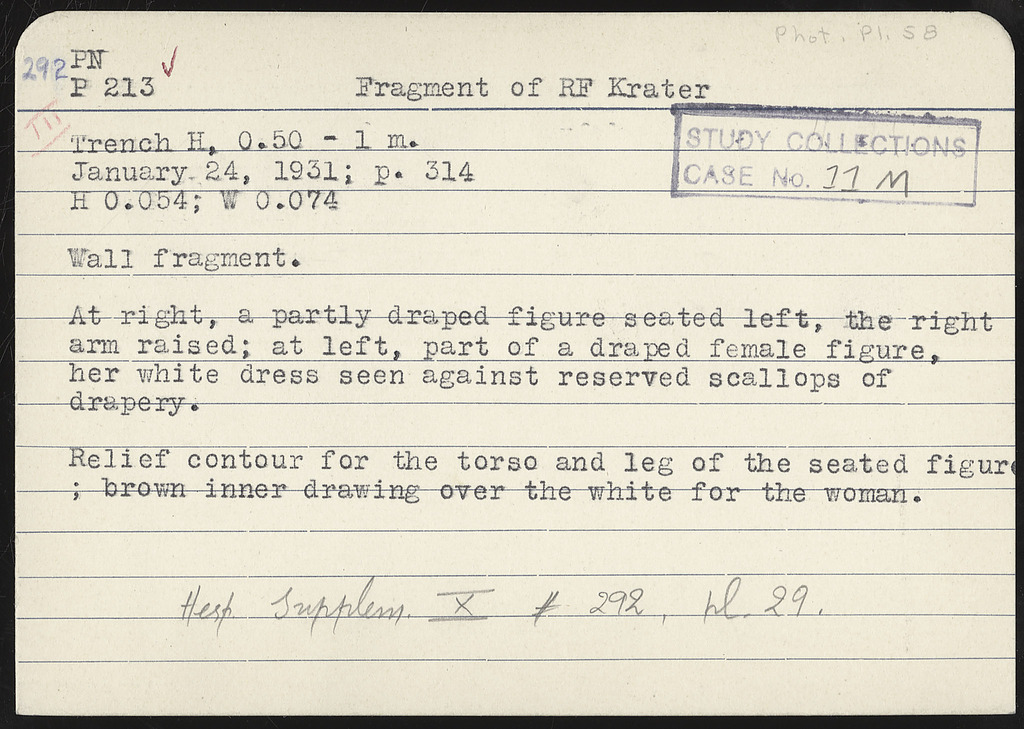 Phot. Pl. 58
292 PN
P 213 ✓ Fragment of RF Krater
III
Trench H, 0.50 - 1 m.
January 24, 1931; p. 314
H 0.054; W 0.074
STUDY COLLECTIONS
CASE No. 11 M
Wall fragment.
At right, a partly draped figure seated left, the right
arm raised; at left, part of a draped female figure,
her white dress seen against reserved scallops of
drapery.
Relief contour for the torso and leg of the seated figure
; brown inner drawing over the white for the woman.
Hesp Supplem. X # 292, pl. 29.